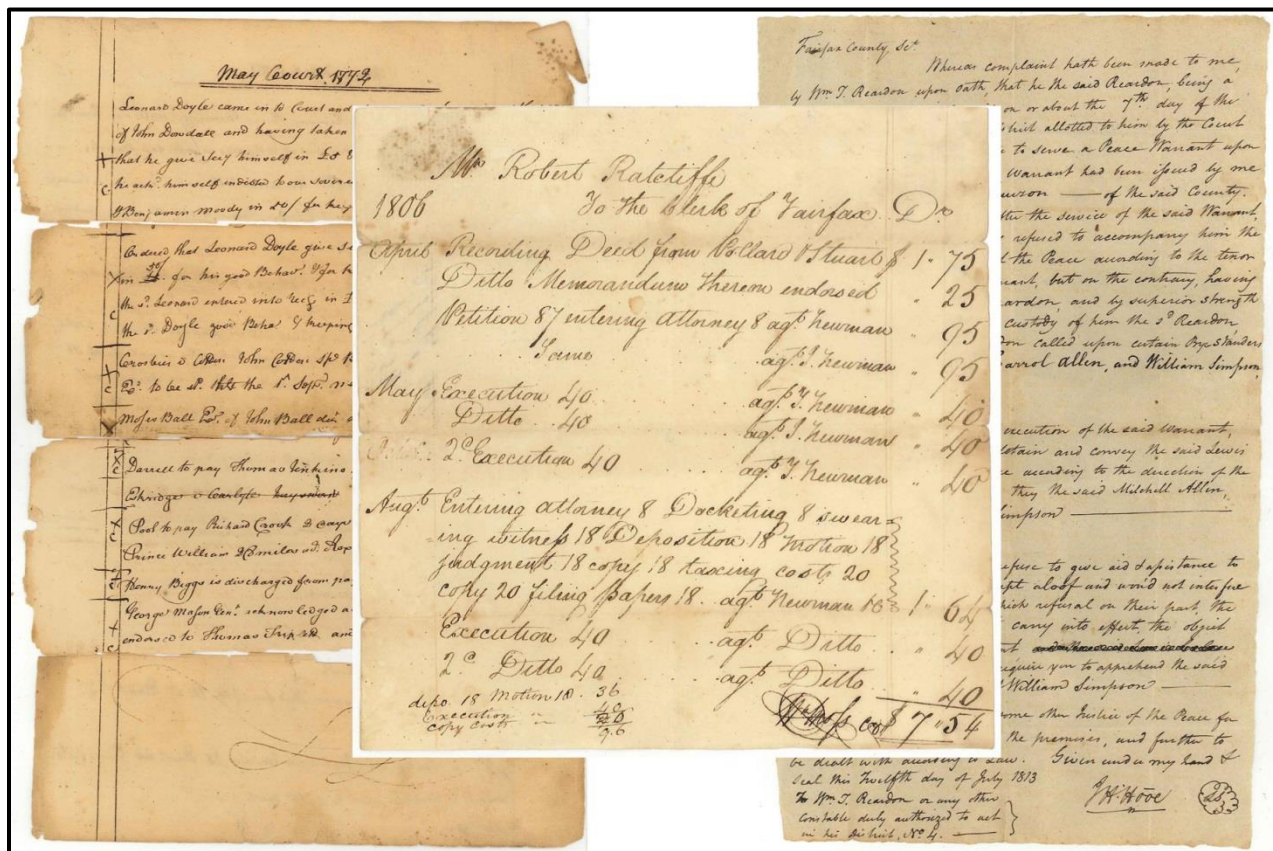 May Court 1772
Leonard Doyle came in to Court and
of John Dowdall and having taken
that he give Secy himself in
he ackd. himself indebted to our sovere
& Benjamin Moody in for keep
Ordered that Leonard Doyle give se
in for his good Behavr. & for
the sd. Leonard entered into recg. in
the sd. Doyle good Behar & keeping
John
to be
Moses Ball Exr. of John Ball
Darrell to pay Thomas Jenkins
Eskridge v Carlyle
Pool to pay Richard Crook 2 days
Prince William
Henry Biggs is discharged from
George Mason Gent. acknowledged a
endorsed to Thomas and
Mr. Robert Ratcliffe
1806 To the Clerk of Fairfax Dr
April Recording Deed from Pollard & Stuart $ 1. 75
Ditto Memorandum thereon endorsed " 25
Petition 87 entering attorney 8 agt. Newman " 95
Same agt. J. Newman " 95
May Execution 40 agt. T. Newman " 40
Ditto 40 agt. J. Newman " 40
2d. Execution 40 agt. T. Newman " 40
Augt. Entering attorney 8 Docketing 8 swear-
-ing witness 18 Deposition 18 motion 18
judgment 18 copy 18 taxing costs 20
copy 20 filing papers 18 agt. Newman 1. 64
Execution 40 agt. Ditto " 40
2d. Ditto 40 agt. Ditto " 40
depo. 18 Motion 18 . 36
Execution 40
copy costs 20
96
Wm Moss $ 7 " 54
Fairfax County, Sct.
Whereas complaint hath been made to me,
by Wm. T. Reardon upon oath, that he the said Reardon, being a
on or about the 7th day of the
district allotted to him by the Court
to serve a Peace Warrant upon
Warrant had been issued by me
of the said County.
the service of the said Warrant,
refused to accompany him the
the Peace according to the tenor
but on the contrary, having
Reardon, and by superior strength
custody of him the sd. Reardon,
called upon certain Bye Standers
Allen, and William Simpson,
execution of the said Warrant,
and convey the said Lewis
according to the direction of the
they the said Mitchell Allen,
Simpson
refuse to give aid & assistance to
kept aloof and would not interfere
which refusal on their part, the
carry into effect the object
require you to apprehend the said
William Simpson
some other Justice of the Peace for
the premises, and further to
be dealt with according to Law. Given under my hand &
seal this Twelfth day of July 1813
To Wm. T. Reardon or any other
Constable duly authorized to act
in his District, No. 4.